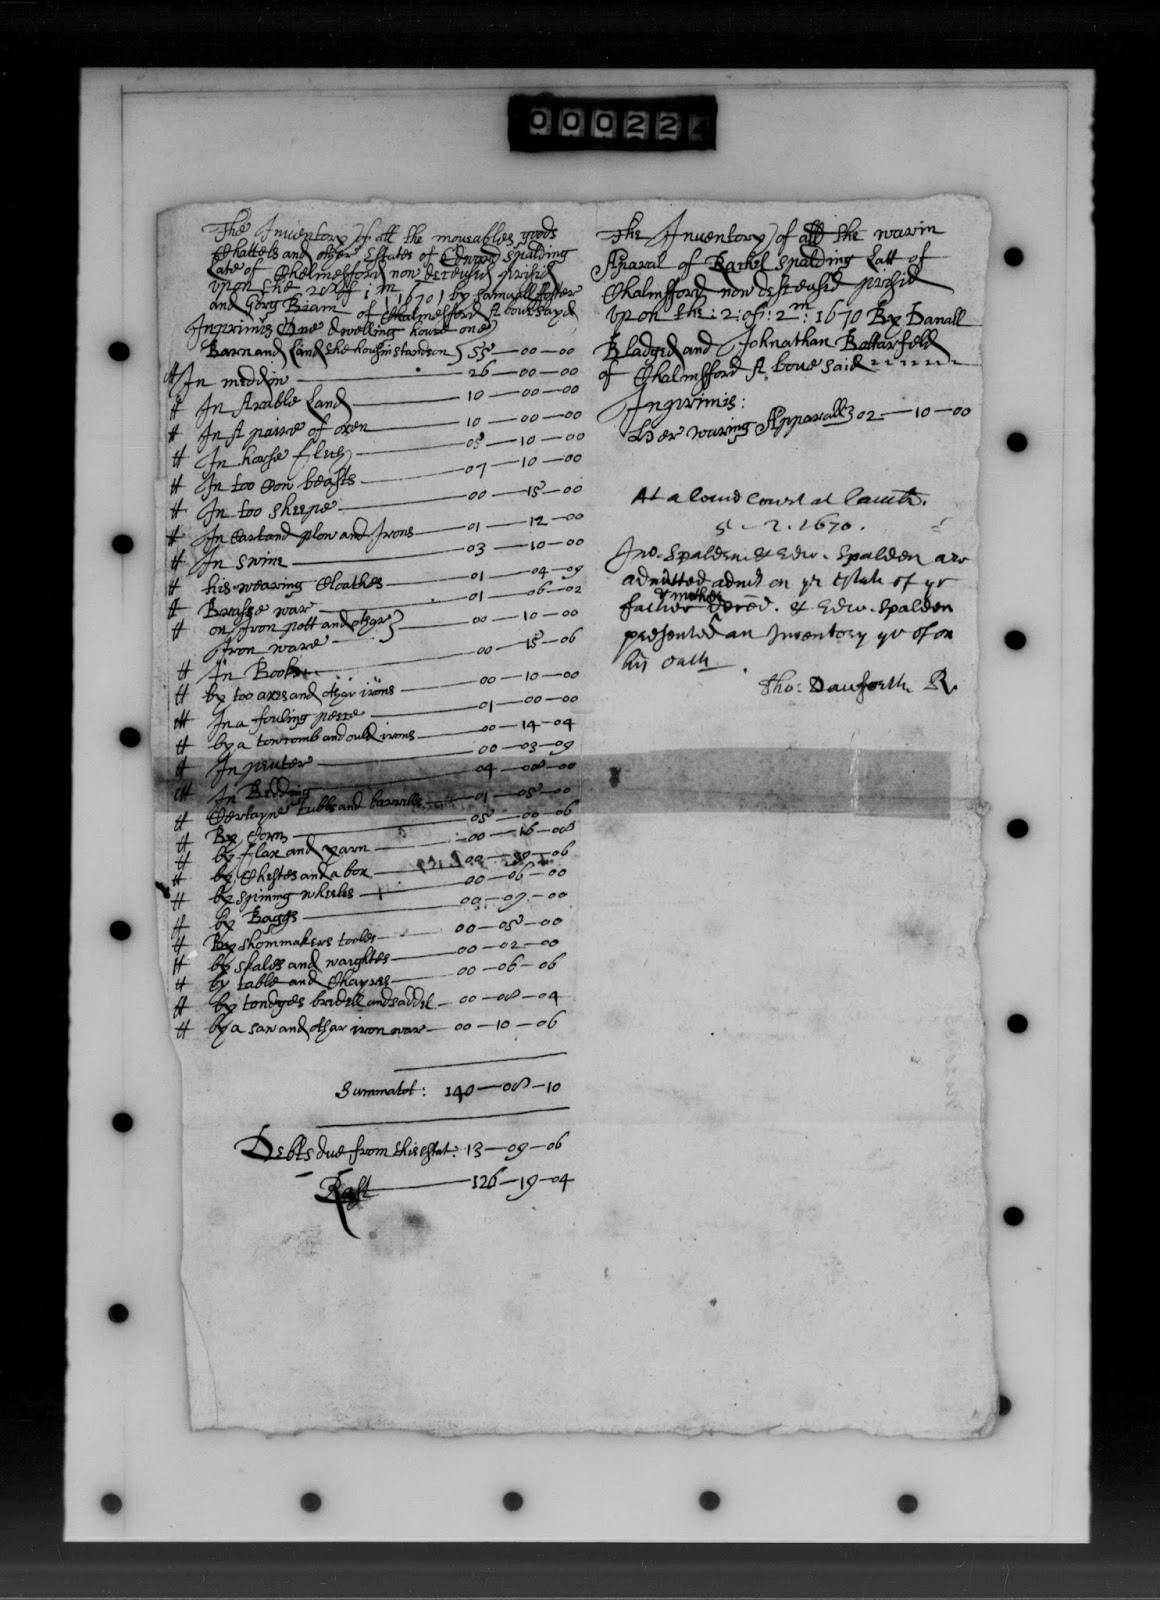 000224
The Inventory of all the moveables goods
Chattels and other Estates of Edward Spalding
Late of Chelmesford now deceased prised
upon the
1670 by Samuell ffoster
and Gorg Beam of Chelmesford A bovesayd
Inprimis One dwelling house one
Barn and Land the housin stands on 55—00—00
In meddow 26—00—00
In Arable Land 10—00—00
In A paire of oxen 10—00—00
In horse flesh 05—10—00
In too Cow beasts 07—10—00
In too sheepe 00—15—00
In Cart and plow and Irons 01—12—00
In swine 03—10—00
his wearing Cloathes 01—04—09
Brasse war 01—06—02
on Iron pott and other
Iron ware 00—10—00
In Books 00—15—06
by too axes and othar irons 00—10—00
In a fouling peese 01—00—00
by a towcomb and ould irons 00—14—04
In peuter 00—03—09
In Bedding 04—00—00
Certayne tubbs and barrells 01—05—00
By Corn 05—00—06
by flax and yarn 00—16—08
by Chestes and a box
by spining wheeles 00—06—00
by Baggs 00—09—00
By shommakers tooles 00—05—00
by skales and waightes 00—02—00
by table and Chayres 00—06—06
by tonges bridell and saddel 00—08—04
by a saw and othar iron war 00—10—06
Summatot: 140—08—10
Debts due from this estat: 13—09—06
Rest 126—19—04
The Inventory of all the warin
Aparal of Rachel Spalding Latt of
Chalmsfford now deseased prised
upon the: 2: of: 2m: 1670 By Danall
Bladged and Johnathan Buttarfeld
of Chalmsfford A bove said
Inprimis:
Her waring Apparall 02—10—00
At a County Court at Camb.
5. 2. 1670.
Jno. Spalden & Edw. Spalden are
admitted admrs on ye estate of yr
father & mother deced. & Edw. Spalden
presented an Inventory yr of on
his oath.
Tho: Danforth R.